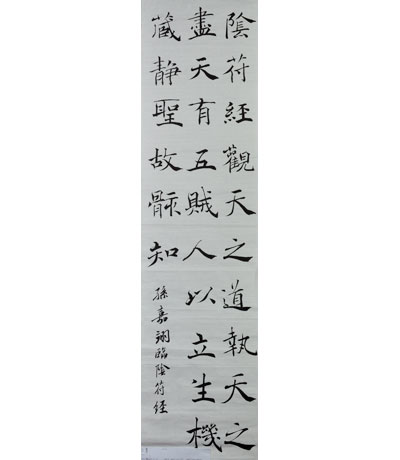 陰符經觀天之道執天之
盡天有五賊人以立生機
藏靜聖故骸知
孫嘉翊臨陰符经